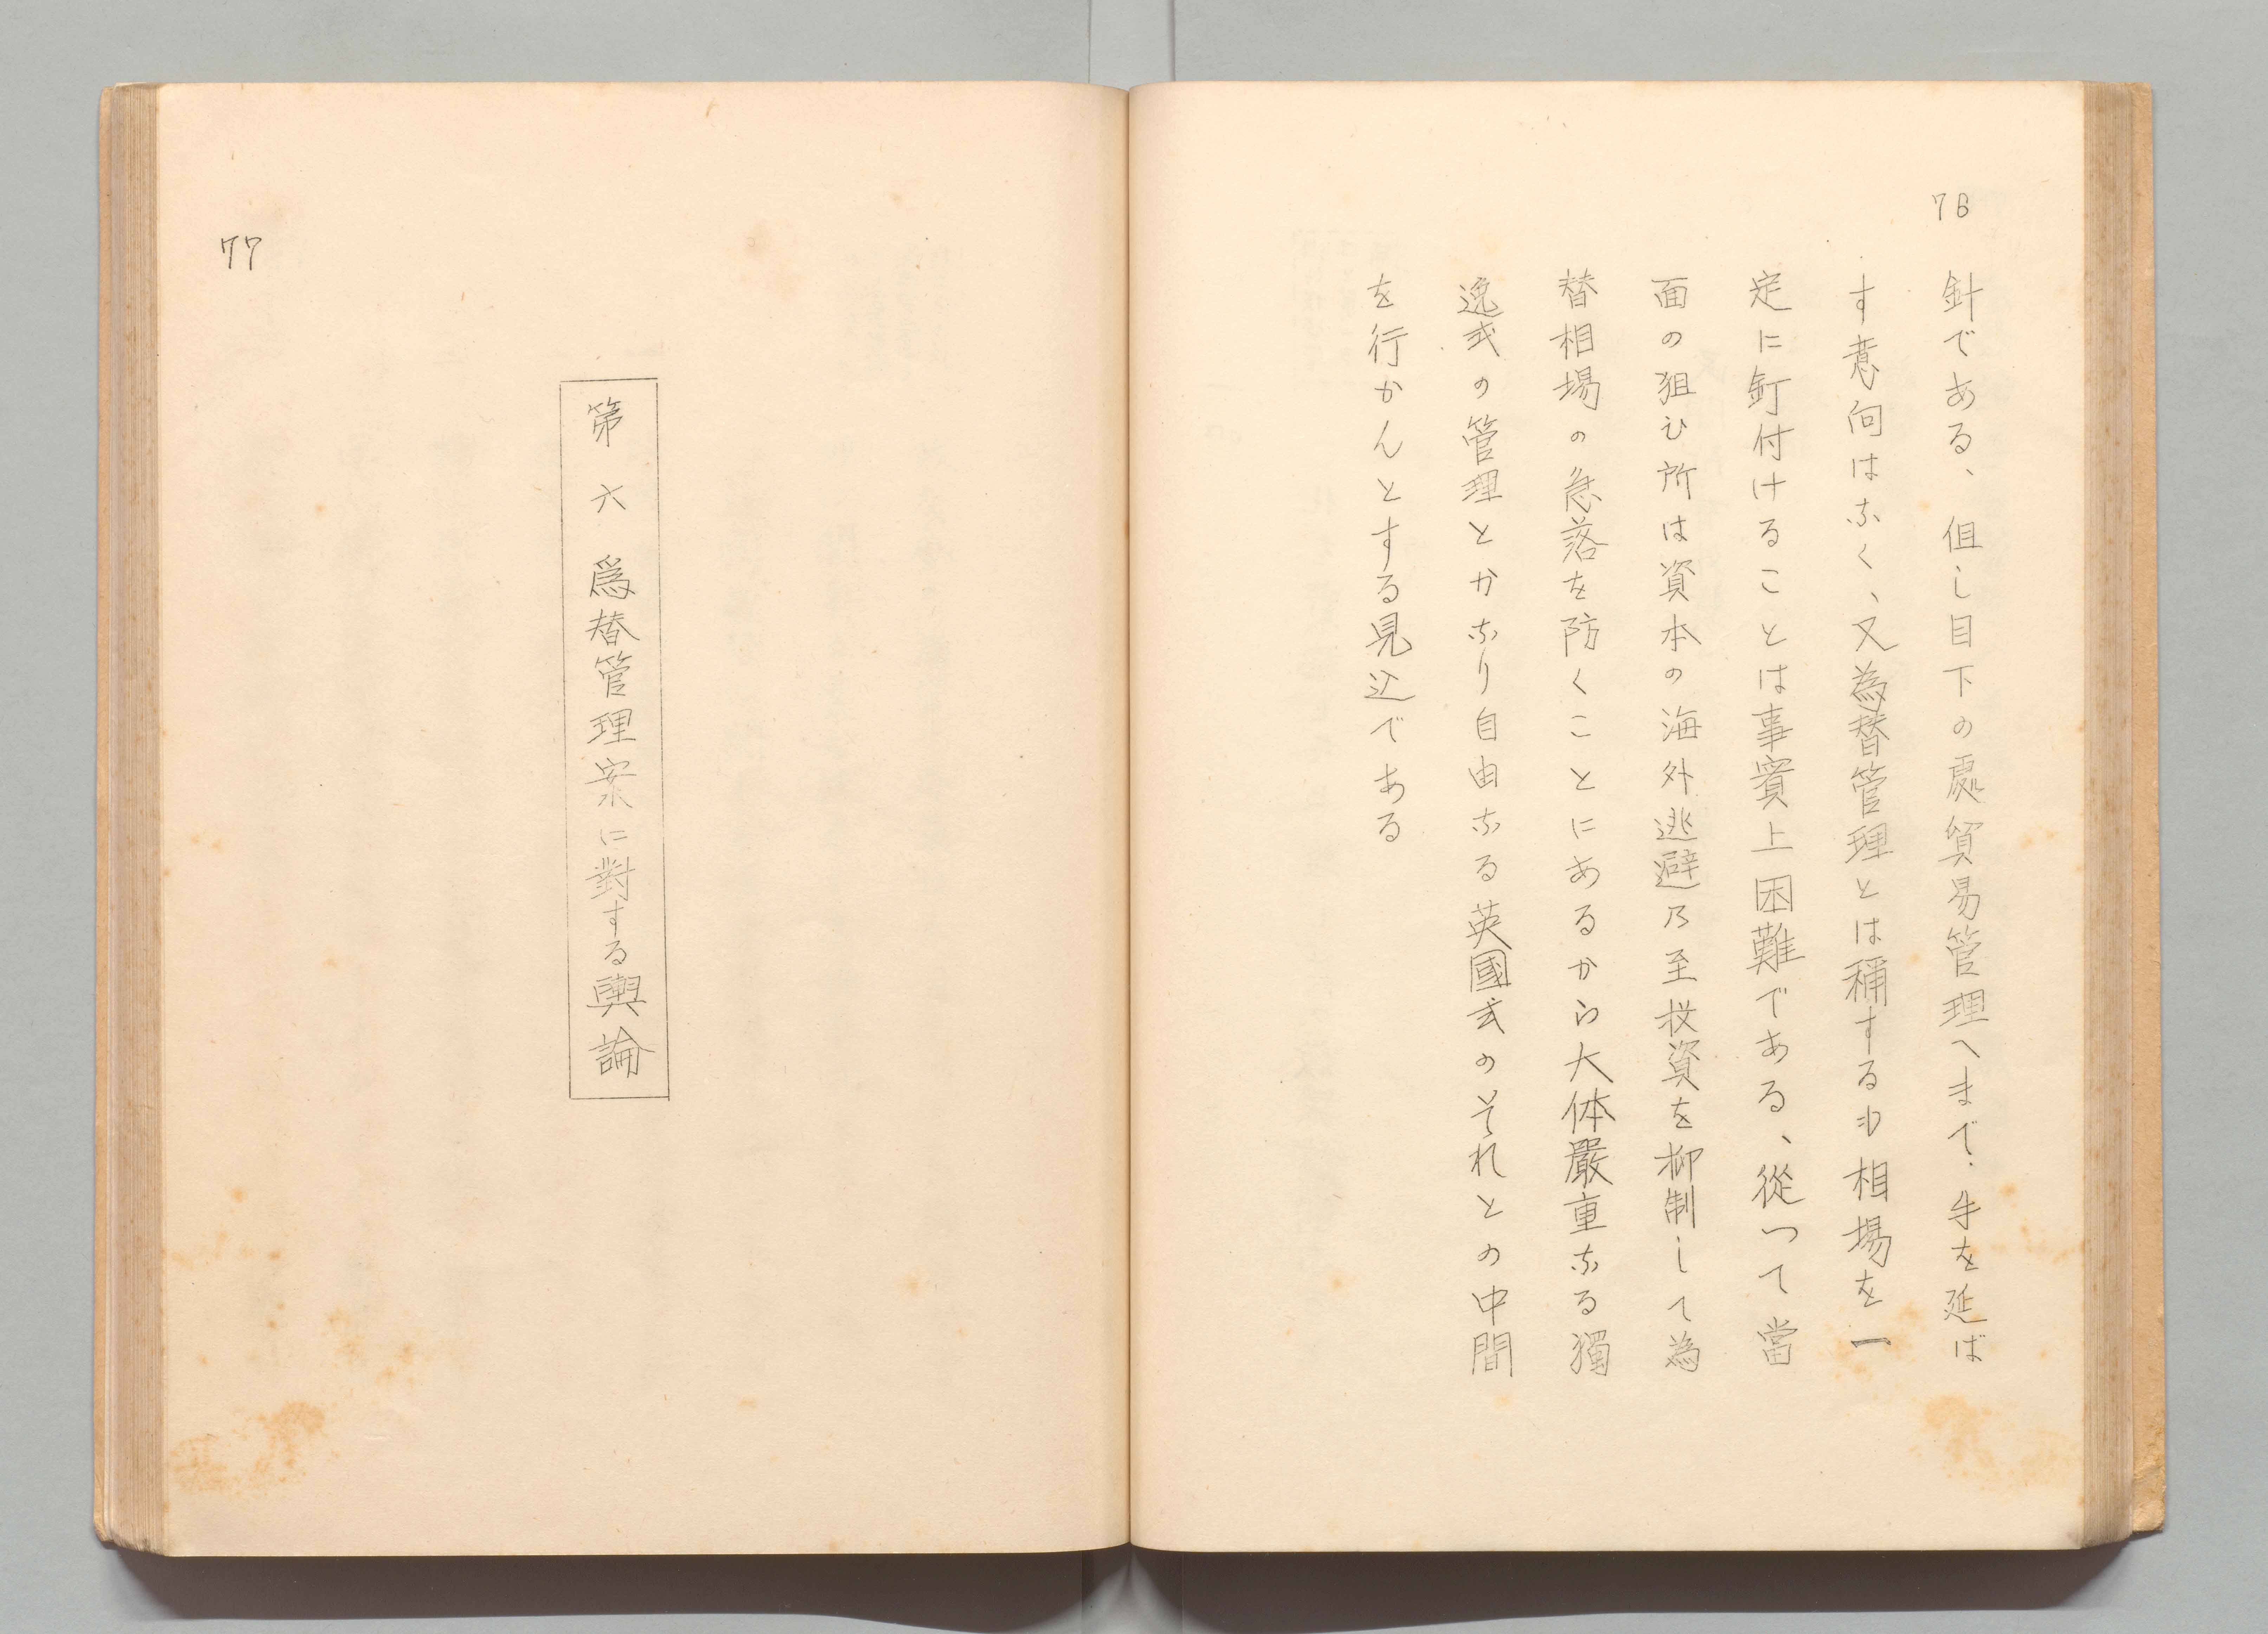 76
針である、但し目下の處貿易管理へまで手を延ば
す意向はなく、又為替管理とは稱するも相場を一
定に釘付けることは事實上困難である、從つて當
面の狙ひ所は資本の海外逃避乃至投資を抑制して為
替相場の急落を防くことにあるから大体嚴重なる獨
逸式の管理とかなり自由なる英國式のそれとの中間
を行かんとする見込である
77
第六 爲替管理案に對する輿論